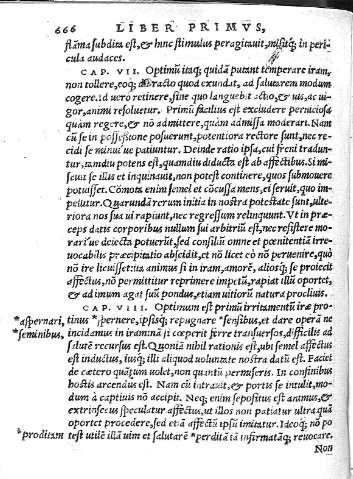 666 LIBER PRIMVS,
flāma subdita est, & hinc stimulus peragitauit, misitq; in peri
cula audaces.
CAP. VII. Optimū itaq; quidā putant temperare iram,
non tollere, eoq; detracto quod exundat, ad salutarem modum
cogere. id uero retinere, sine quo languebit actio, & uis, ac ui-
gor, animi resoluetur. Primū facilius est excludere perniciosa
quàm regere, & nō admittere, quàm admissa moderari. Nam
cū se in possessione posuerunt, potentiora rectore sunt, nec re-
cidi se minui ue patiuntur. Deinde ratio ipsa, cui freni tradun-
tur, tamdiu potens est, quamdiu diducta est ab affectibus. Si mi-
scuit se illis et inquinauit, non potest continere, quos submouere
potuisset. Cōmota enim semel et cōcussa mens, ei seruit, quo im-
pellitur. Quarundā rerum initia in nostra potestate sunt, ulte-
riora nos sua ui rapiunt, nec regressum relinquunt. Vt in præ-
ceps datis corporibus nullum sui arbitriū est, nec resistere mo-
rari ue deiecta potuerūt, sed consiliū omne et pœnitentiā irre-
uocabilis præcipitatio abscidit, et nō licet eò nō peruenire, quò
nō ire licuisset: ita animus si in iram, amorē, aliosq; se proiecit
affectus, nō permittitur reprimere impetū, rapiat illū oportet,
& ad imum agat suū pondus, et iam uitiorū natura procliuis.
CAP. VIII. Optimum est primū irritamentū iræ pro-
*aspernari, tinus *spernere, ipsisq; repugnare *sensibus, et dare operā ne
*seminibus, incidamus in iram. nā si cœperit ferre transuersos, difficilis ad
salutē recursus est. Quoniā nihil rationis est, ubi semel affectus
est inductus, iusq; illi aliquod uoluntate nostra datū est. Faciet
de cætero quātum uolet, non quantū permiseris. In confinibus
hostis arcendus est. Nam cū intrauit, & portis se intulit, mo-
dum à captiuis nō accipit. Neq; enim sepositus est animus, &
extrinsecus speculatur affectus, ut illos non patiatur ultra quā
oportet procedere, sed et in affectū ipse mutatur. Ideoq; nō po
*proditam test utilē illā uim et salutarē *perditā iā infirmatāq; reuocare.
Non